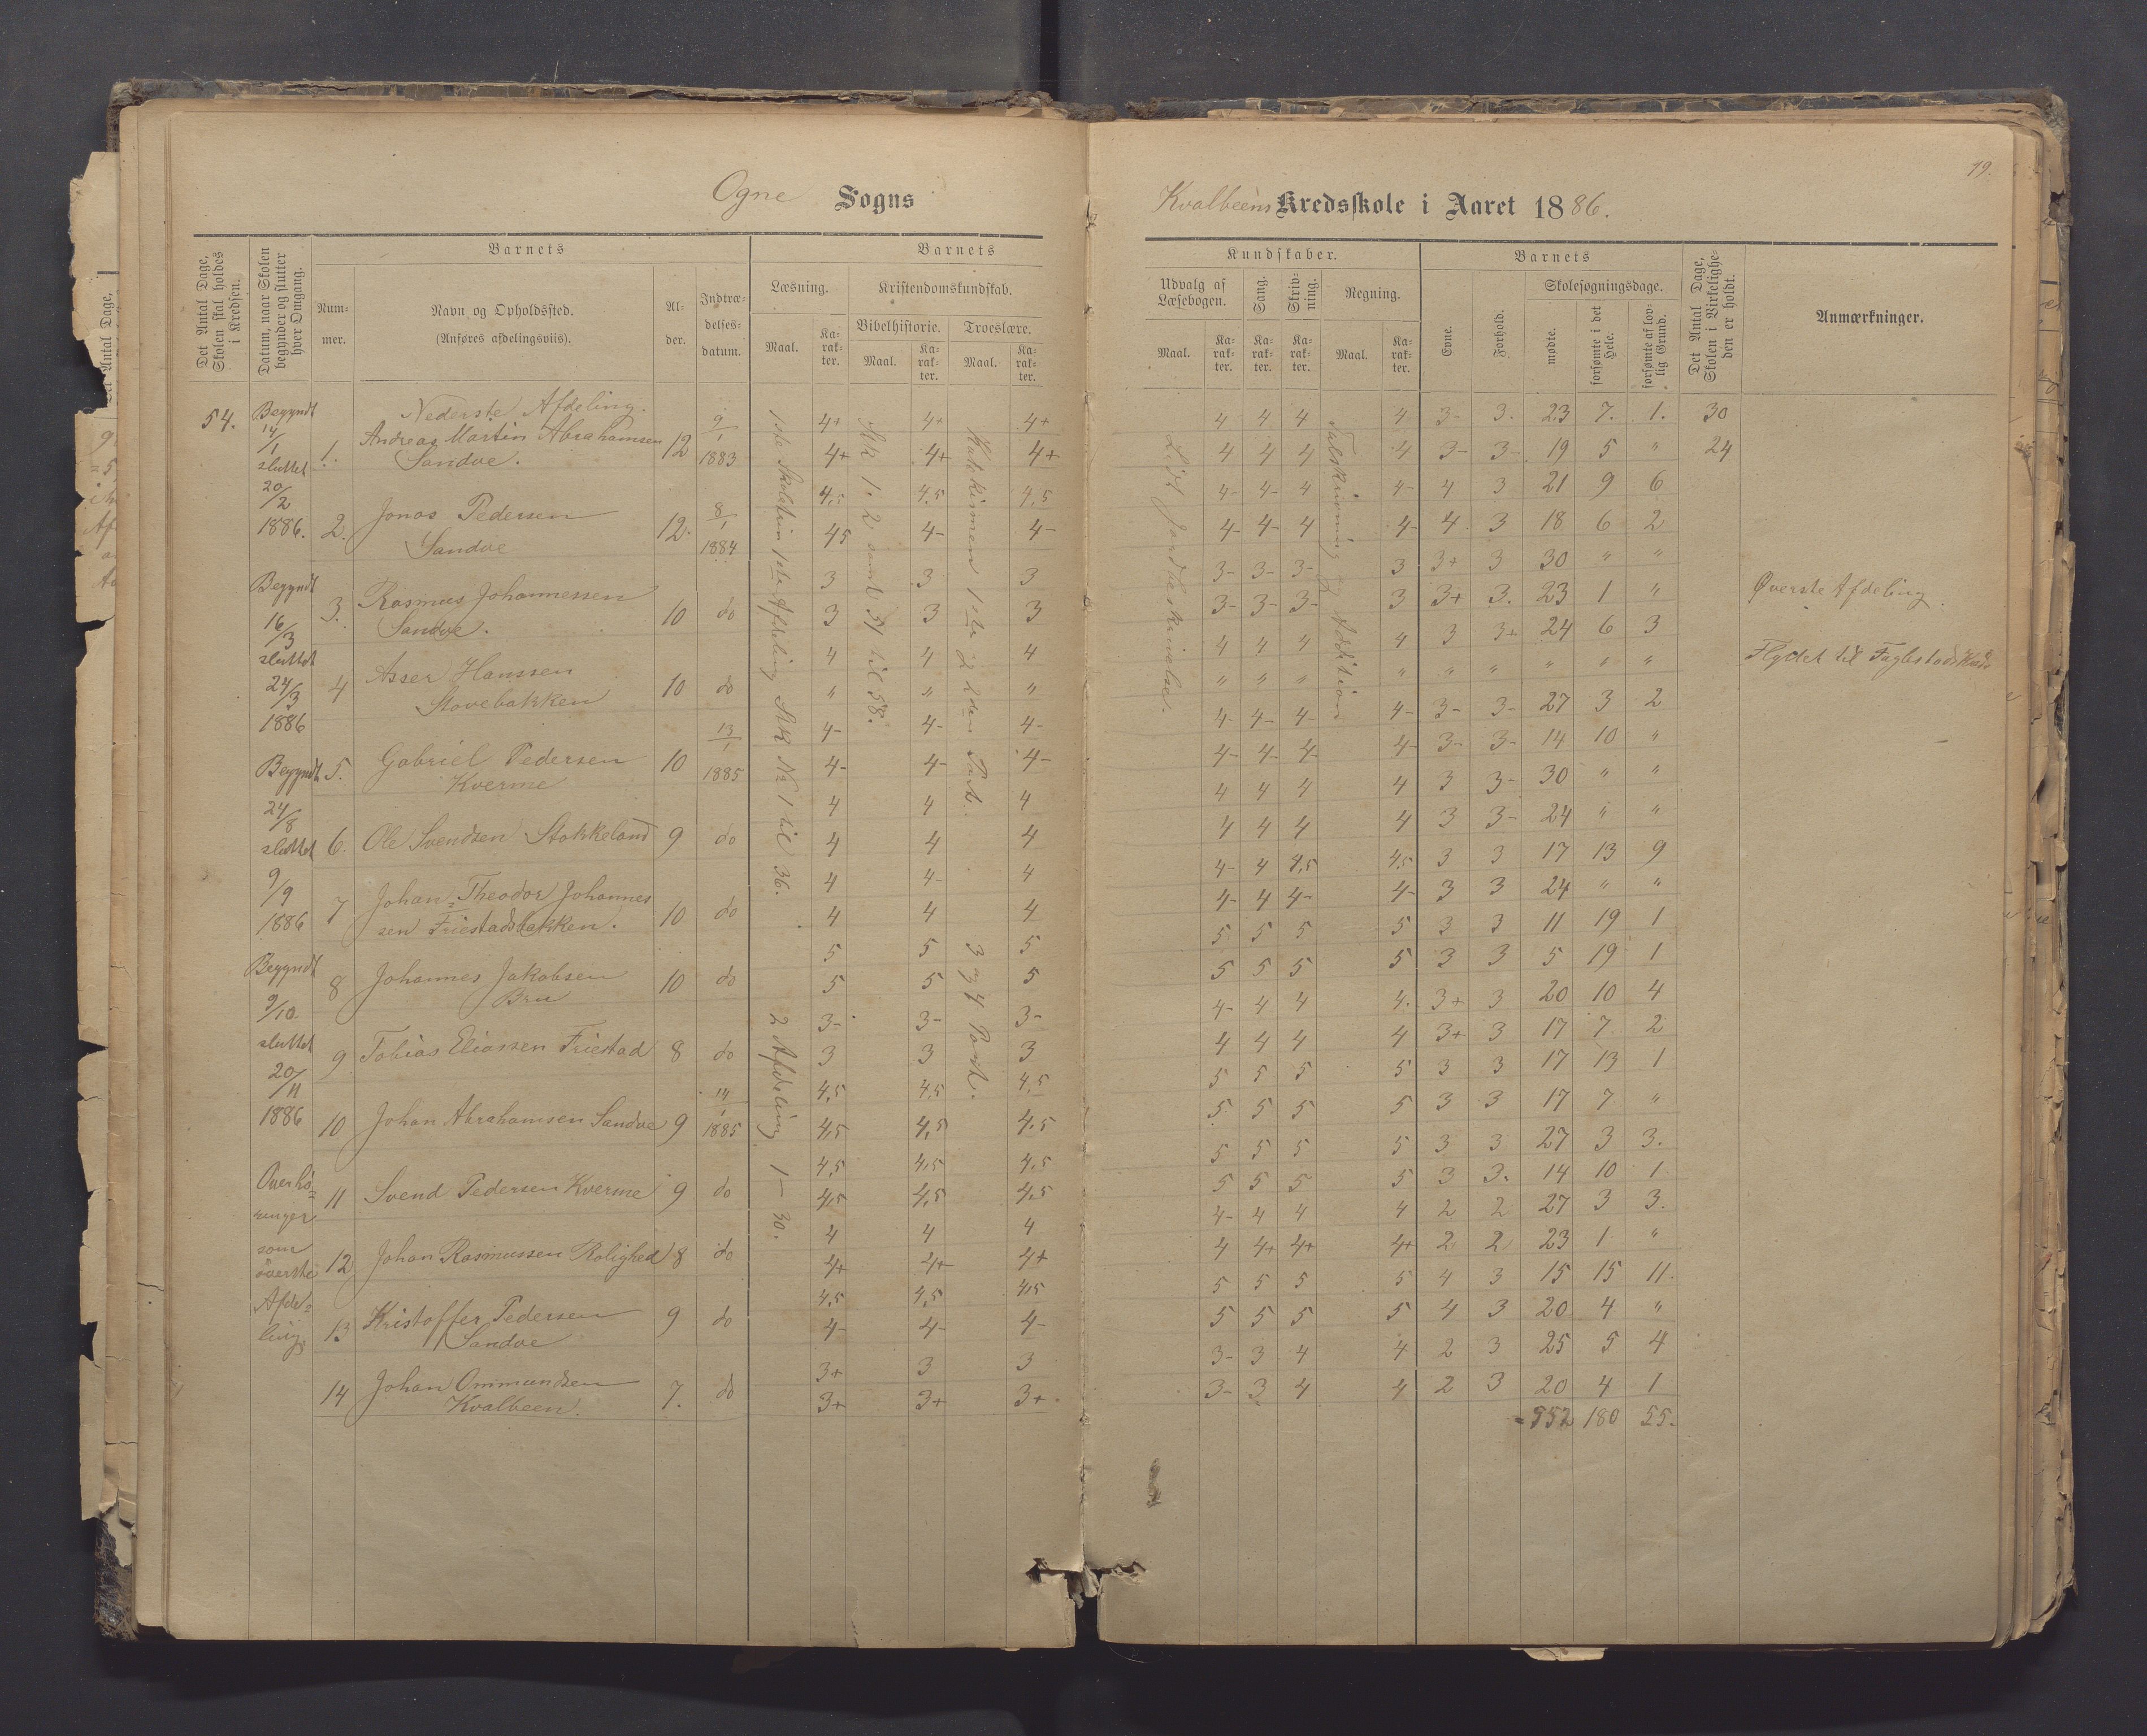 Ogne Sogns
Det Antal Dage, Skolen skal holdes i Kredsen.
Datum, naar Skolen begynder og slutter hver Omgang.
Barnets
Num-mer.
Navn og Opholdssted.
(Anføres afdelingsviis).
Al-der.
Indtræ-delses-datum.
Barnets
Læsning.
Kristendomskundskab.
Bibelhistorie. Troeslære.
Maal. Ka-rak-ter. Maal. Ka-rak-ter. Maal. Ka-rak-ter.
54.
Begyndt
14/1
sluttet
20/2
1886.
Begyndt
16/3
sluttet
24/3
1886
Begyndt
24/8
sluttet
9/9
1886
Begyndt
9/10
sluttet
20/11
1886
Overhö=
ringer
som
överste
Afde=
ling
Nederste Afdeling.
1. Andreas Martin Abrahamsen 12 9/1
Sandve. 1883
2. Jonas Pedersen 12. 8/1
Sandve 1884
3. Rasmus Johannessen 10 do
Sandve.
4 Asser Hanssen 10 do
Stovebakken
5. Gabriel Pedersen 10 13/1
Kverme 1885
6. Ole Svendsen Stokkeland 9 do
7 Johan=Theodor Johannes
sen Friestadsbakken. 10 do
8 Johannes Jakobsen 10 do
Bru
9 Tobias Eliassen Friestad 8 do
10 Johan Abrahamsen Sandve 9 14/1 1885
11 Svend Pedersen Kverme 9 do
12 Johan Rasmussen Rolighed 8 do
13 Kristoffer Pedersen 9 do
Sandve
14 Johan Ommundsen 7. do
Kvalbeen.
1ste Skoletrin 1ste Afdeling Stk № 1 til 36.
2 Afdeling 1 – 30.
Stk 1. 2 samt 31 til 58.
Katekismen 1ste og 2den Part.
3 og 4 Part.
4+ 4+ 4+
4+ 4+ 4+
4,5 4,5 4,5
45 4- 4-
3 3 3
3 3 3
4 4 4
" " "
4- 4- 4-
4- 4- 4-
4 4 4
4 4 4
4 4- 4
4 4 4
5 5 5
5 5 5
3- 3- 3-
3 3 3
4,5 4,5 4,5
4,5 4,5 4,5
4,5 4,5 4,5
4,5 4,5 4,5
4 4 4
4+ 4+ 4+
4,5 4,5 4,5
4- 4- 4-
3+ 3 3
3+ 3+ 3+.
19.
Kvalbeens Kredsskole i Aaret 1886.
Kundskaber.
Udvalg af Læsebogen.
Sang.
Skriv-ning.
Regning.
Maal. Ka-rak-ter. Ka-rak-ter. Ka-rak-ter. Maal. Ka-rak-ter.
Barnets
Evne.
Forhold.
Skolesøgningsdage.
mødte.
forsømte i det Hele.
forsømte af lov-lig Grund.
Det Antal Dage, Skolen i Virkelighe-den er holdt.
Anmærkninger.
Lidt Jordbeskrivelse.
Talskrivning og Addition
4 4 4 4 3- 3. 23 7. 1. 30
4 4 4 4 3- 3- 19 5 " 24
4- 4- 4 4- 4 3 21 9 6
4- 4- 4 4- 4. 3 18 6 2
3- 3- 3- 3 3+ 3 30 " "
3- 3- 3- 3 3+ 3. 23 1 "
Øverste Afdeling.
4 4 4 4 3 3+ 24 6 3
" " " " " " " " "
Flydet til
4- 4- 4- 4- 3- 3- 27 3 2
4- 4- 4- 4- 3- 3- 14 10 "
4 4 4 4 3 3- 30 " "
4 4 4 4 3 3- 24 " "
4- 4 4,5 4,5 3 3 17 13 9
4- 4 4- 4- 3 3 24 " "
5 5 5 5 3 3 11 19 1
5 5 5 5 3 3 5 19 1
4- 4 4 4. 3+ 3 20 10 4
4 4 4 4 3+ 3 17 7 2
5 5 5 5 3 3 17 13 1
5 5 5 5 3 3 17 7 "
5 5 5 5 3 3 27 3 3.
5 5 5 5 3 3. 14 10 1
4- 4 4 4 2 2 27 3 3.
4 4+ 4+ 4+ 2 2 23 1 "
5 5 5 5 4 3 15 15 11.
5 5 5 5 4 3 20 4 "
3- 3 4 4 2 3 25 5 4
3- 3 4 4 2 3 20 4 1
552 180 55.